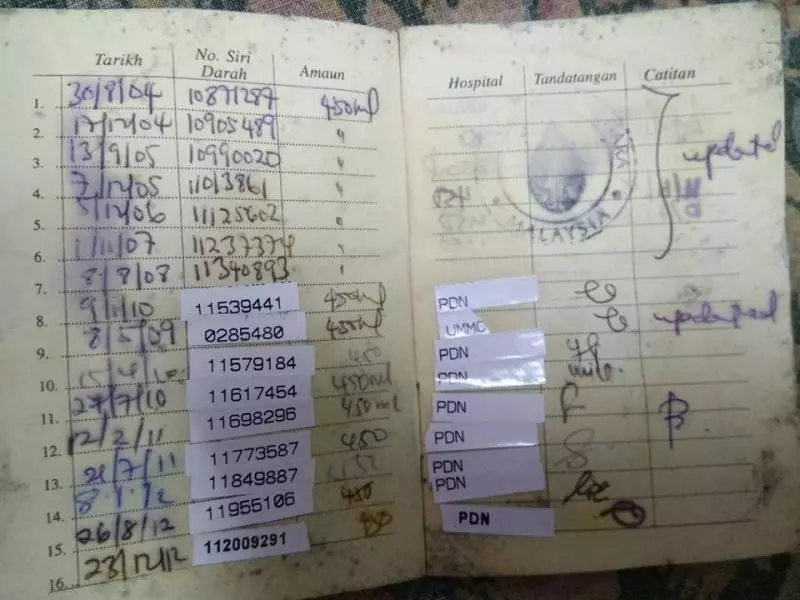 Tarikh No. Siri Darah Amaun Hospital Tandatangan Catitan
1. 30/8/04 10871287 450ml
2. 17/12/04 10905489 "
3. 13/9/05 10990020 " updated
4. 7/12/05 11013861 "
5. 5/12/06 11125602 "
MALAYSIA
6. 1/11/07 11237374 "
7. 8/8/08 11340893 "
8. 9/1/10 11539441 450ml PDN
9. 8/5/09 0285480 450ml UMMC updated
10. 11579184 450 PDN
11. 27/7/10 11617454 450ml PDN
12. 12/2/11 11698296 450ml PDN
13. 21/7/11 11773587 450 PDN
14. 8.1.12 11849887 PDN
15. 26/8/12 11955106 450 PDN
16. 23/12/12 112009291 PDN